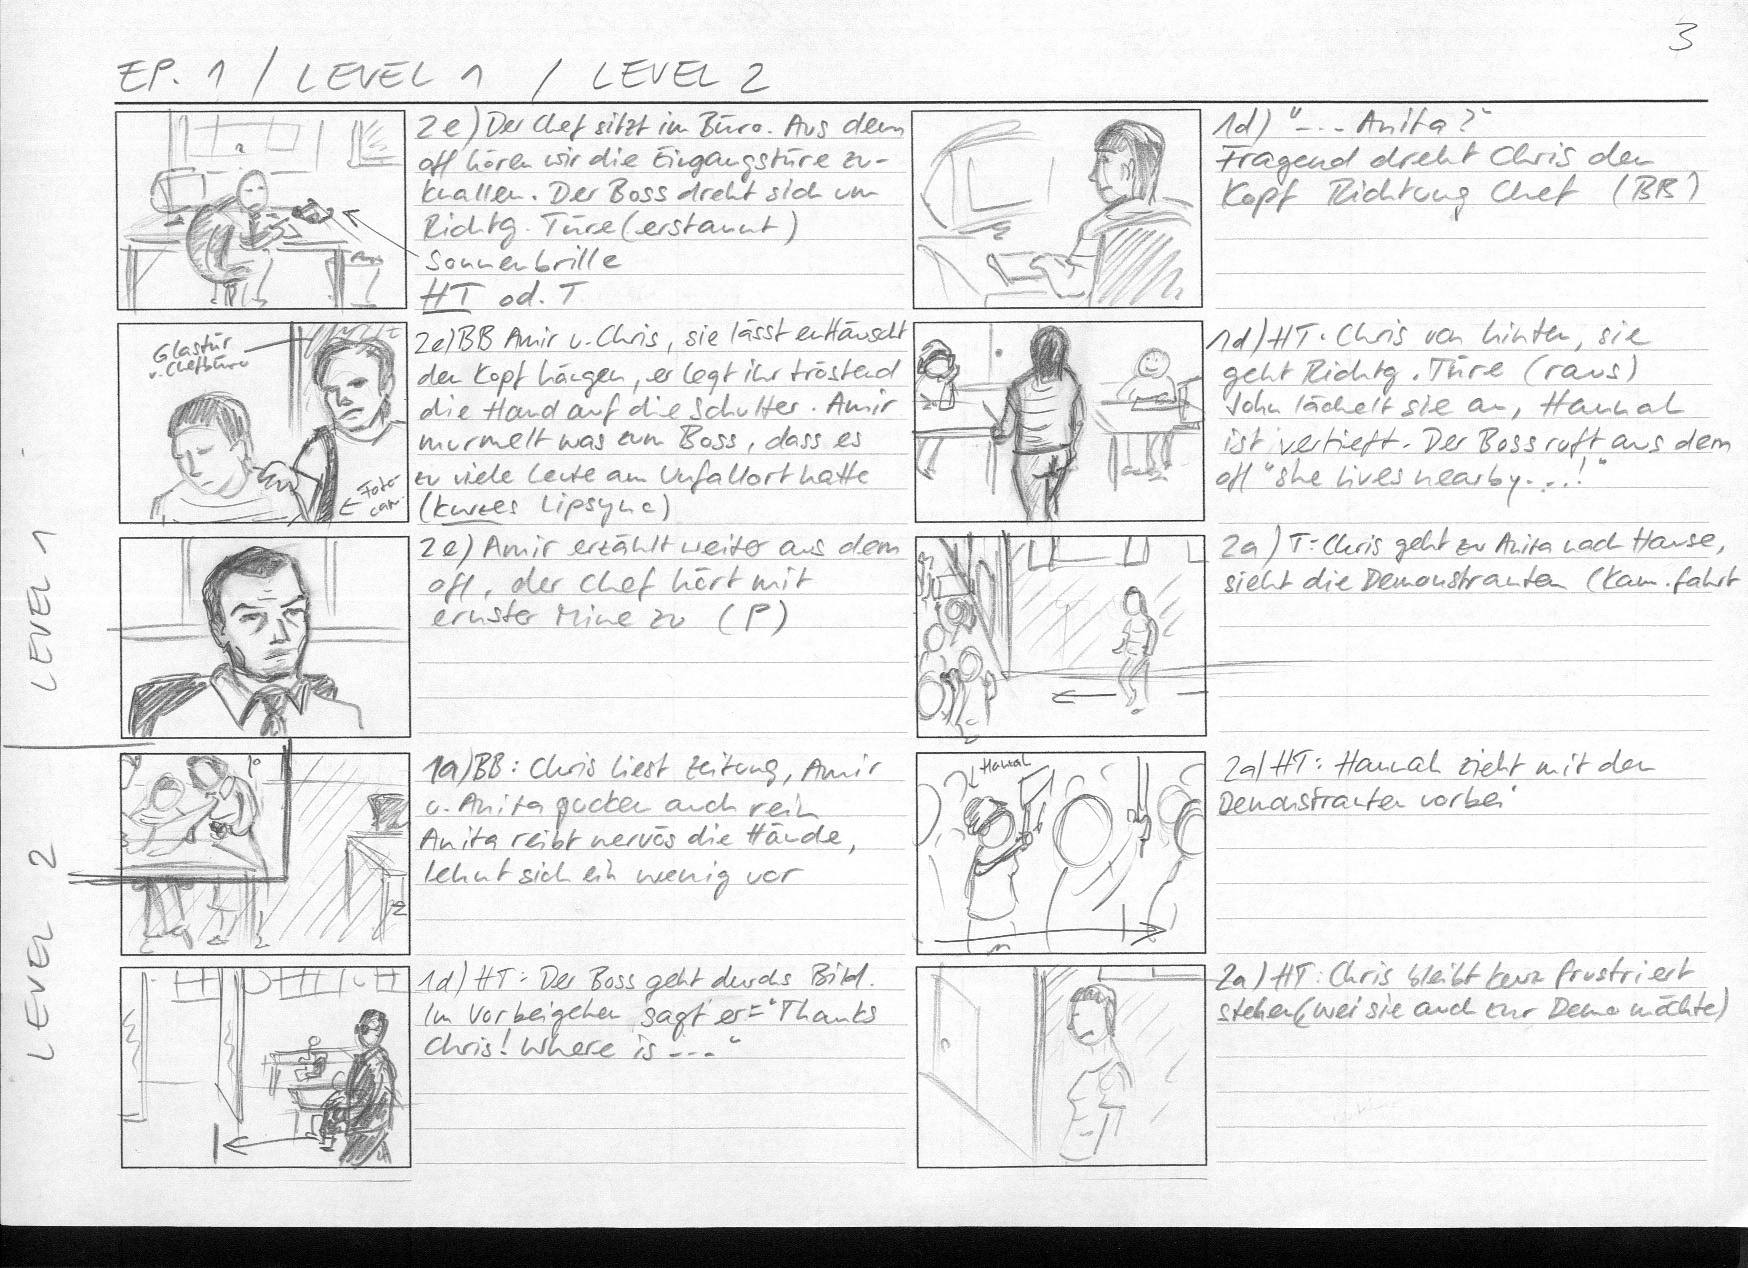 3
EP. 1 / LEVEL 1 / LEVEL 2
2e) Der Chef sitzt im Büro. Aus dem
off hören wir die Eingangstüre zu-
knallen. Der Boss dreht sich um
Richtg. Türe (erstaunt)
Sonnenbrille
HT od. T
Glastür
v. Chefbüro
Foto-
cam.
2e) BB Amir u. Chris, sie lässt enttäuscht
den Kopf hängen, er legt ihr tröstend
die Hand auf die Schulter. Amir
murmelt was zum Boss, dass es
zu viele Leute am Unfallort hatte
(kurzes Lipsync)
LEVEL 1
2e) Amir erzählt weiter aus dem
off, der Chef hört mit
ernster Mine zu (P)
LEVEL 2
1a) BB: Chris liest Zeitung, Amir
u. Anita gucken auch rein
Anita reibt nervös die Hände,
lehnt sich ein wenig vor
1d) HT: Der Boss geht durchs Bild.
Im Vorbeigehen sagt er: "Thanks
Chris! Where is ---"
1d) "--- Anita?"
Fragend dreht Chris den
Kopf Richtung Chef (BB)
1d) HT. Chris von hinten, sie
geht Richtg. Türe (raus)
John lächelt sie an, Hannah
ist vertieft. Der Boss ruft aus dem
off "she lives nearby...!"
2a) T: Chris geht zu Anita nach Hause,
sieht die Demonstranten (Kam.fahrt
Hannah
2a) HT: Hannah zieht mit den
Demonstranten vorbei
2a) HT: Chris bleibt kurz frustriert
stehen (weil sie auch zur Demo möchte)